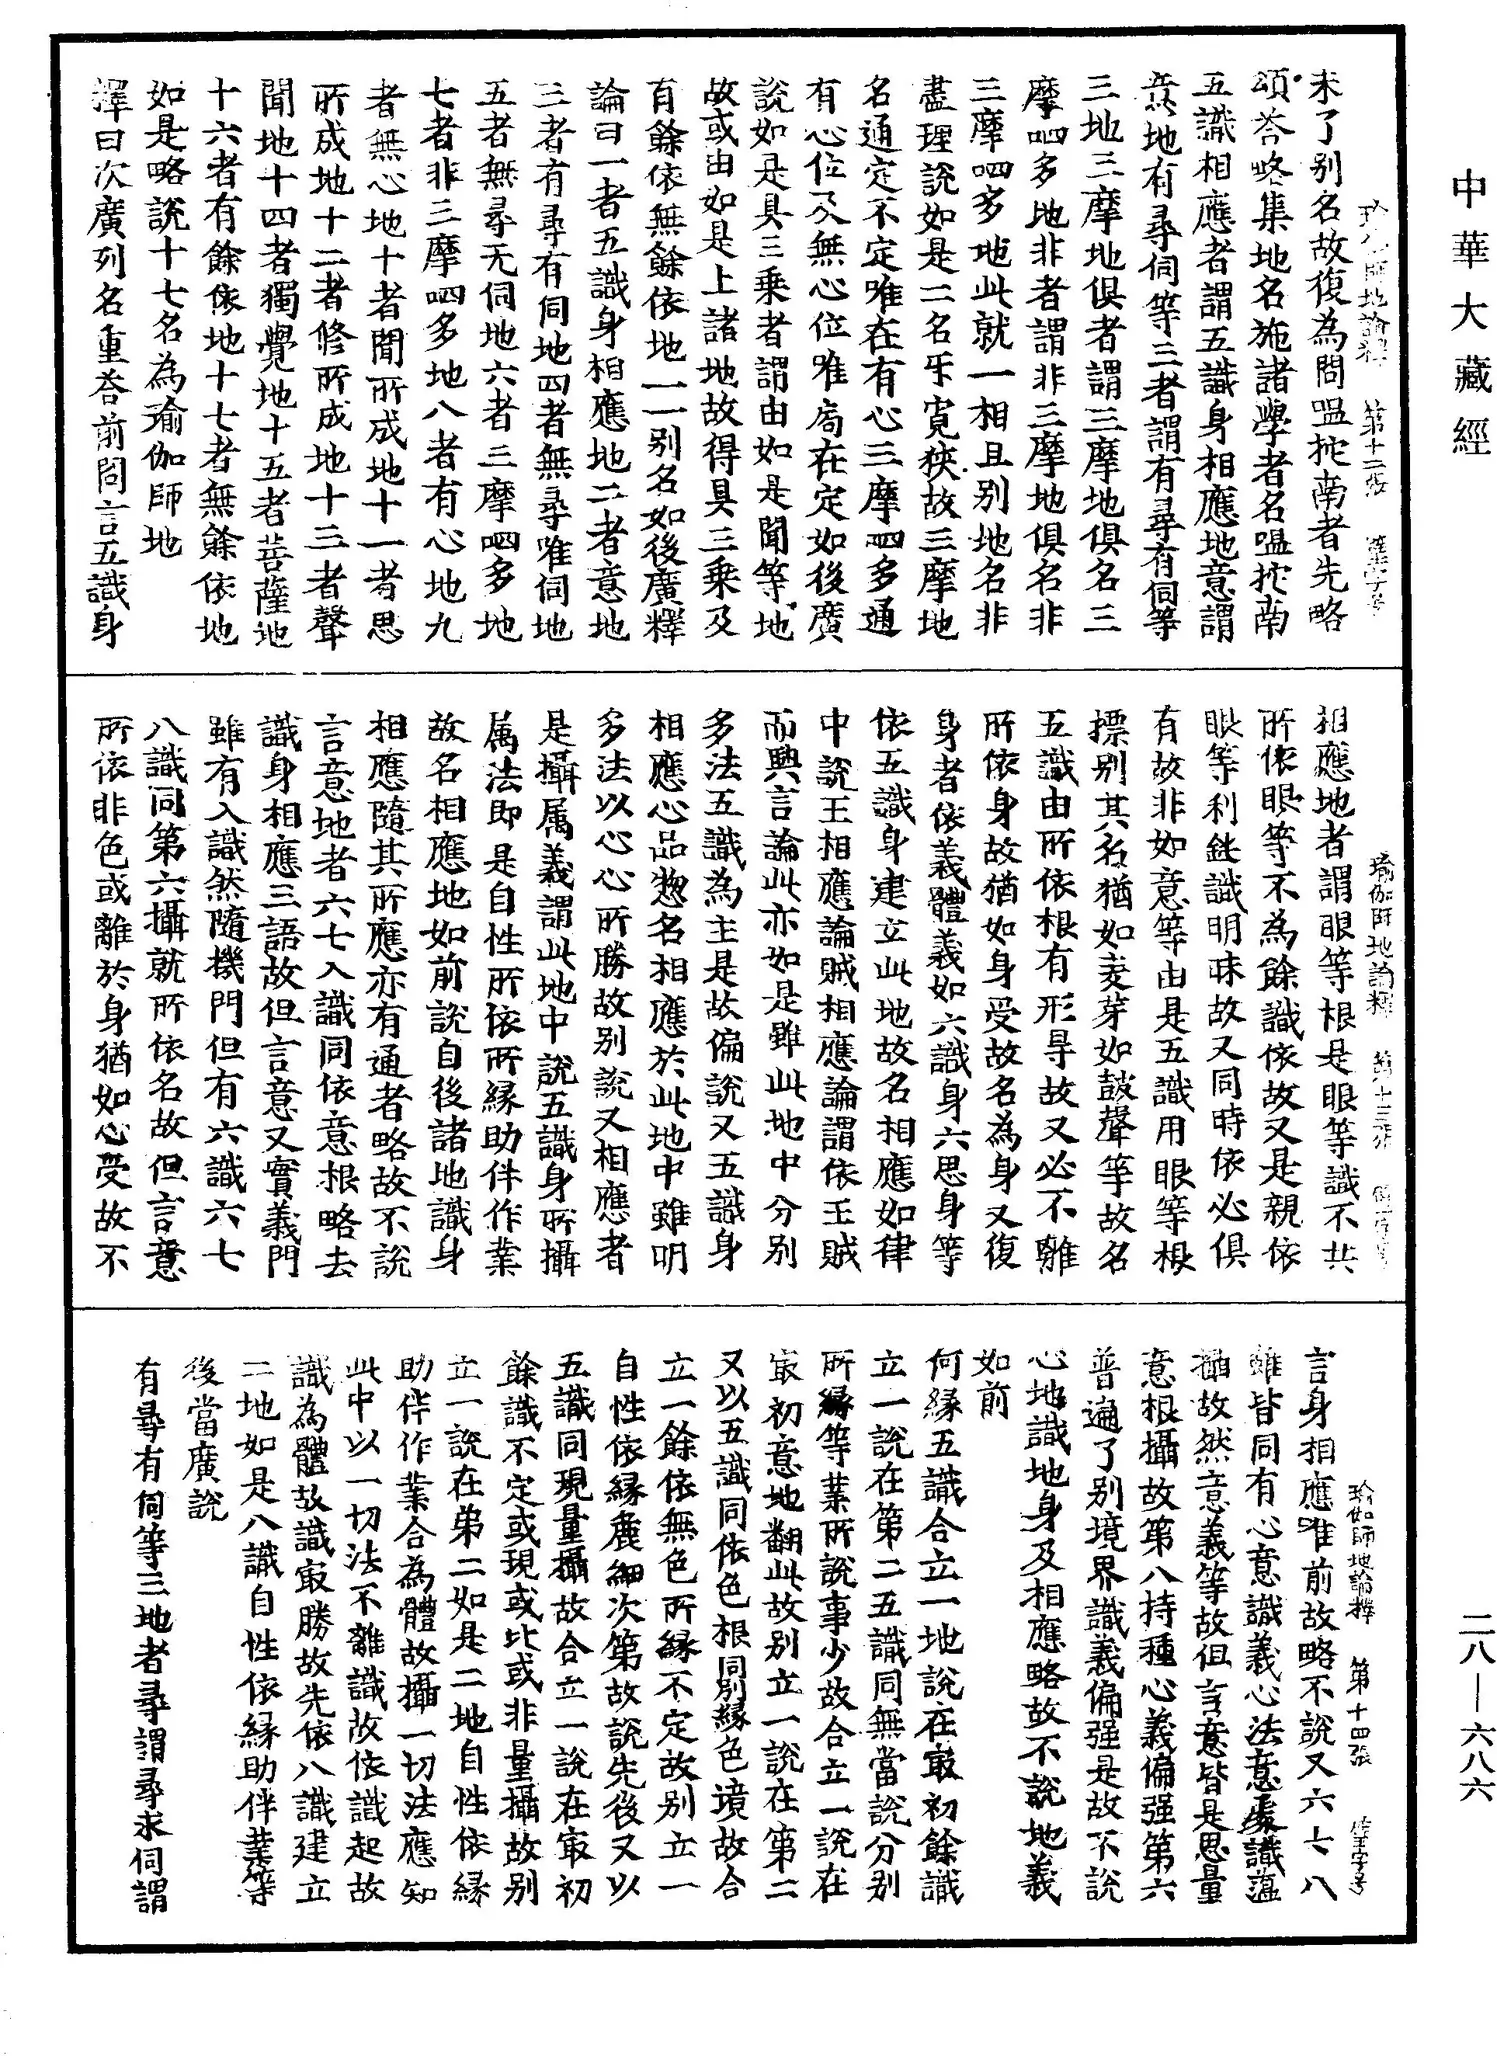 中華大藏經
瑜伽師地論釋 第十二張
未了別名故復為問嗢拕南者先略
頌荅略集地名施諸學者名嗢拕南
五識相應者謂五識身相應地意謂
意地有尋伺等三者謂有尋有伺等
三地三摩地俱者謂三摩地俱名三
摩呬多地非者謂非三摩地俱名非
三摩呬多地此就一相且別地名非
盡理說如是二名乐寛狹故三摩地
名通定不定唯在有心三摩呬多通
有心位及無心位唯局在定如後廣
說如是具三乘者謂由如是聞等地
故或由如是上諸地故得具三乘及
有餘依無餘依地一一別名如後廣釋
論曰一者五識身相應地二者意地
三者有尋有伺地四者無尋唯伺地
五者無尋无伺地六者三摩呬多地
七者非三摩呬多地八者有心地九
者無心地十者聞所成地十一者思
所成地十二者修所成地十三者聲
聞地十四者獨覺地十五者菩薩地
十六者有餘依地十七者無餘依地
如是略說十七名為瑜伽師地
釋曰次廣列名重荅前問言五識身
瑜伽師地論釋 第十三張
相應地者謂眼等根是眼等識不共
所依眼等不為餘識依故又是親依
眼等利鈍識明昧故又同時依必俱
有故非如意等由是五識用眼等根
摽別其名猶如麦芽如鼓聲等故名
五識由所依根有形导故又必不離
所依身故猶如身受故名為身又復
身者依義體義如六識身六思身等
依五識身建立此地故名相應如律
中說王相應論賊相應論謂依王賊
而興言論此亦如是雖此地中分別
多法五識為主是故偏說又五識身
相應心品惣名相應於此地中雖明
多法以心心所勝故別說又相應者
是攝属義謂此地中說五識身所攝
属法即是自性所依所緣助伴作業
故名相應地如前說自後諸地識身
相應隨其所應亦有通者略故不說
言意地者六七八識同依意根略去
識身相應三語故但言意又實義門
雖有八識然隨機門但有六識六七
八識同第六攝就所依名故但言意
所依非色或離於身猶如心受故不
瑜伽師地論釋 第十四張
言身相應准前故略不說又六七八
雖皆同有心意識義心法意處識蕴
攝故然意義等故但言意皆是思量
意根攝故第八持種心義偏强第六
普遍了別境界識義偏强是故不說
心地識地身及相應略故不說地義
如前
何緣五識合立一地說在冣初餘識
立一說在第二五識同無當說分別
所緣等業所說事少故合立一說在
冣初意地翻此故別立一說在第二
又以五識同依色根同別緣色境故合
立一餘依無色所緣不定故別立一
自性依緣麁細次第故說先後又以
五識同現量攝故合立一說在冣初
餘識不定或現或比或非量攝故別
立一說在第二如是二地自性依緣
助伴作業合為體故攝一切法應知
此中以一切法不離識故依識起故
識為體故識冣勝故先依八識建立
二地如是八識自性依緣助伴業等
後當廣說
有尋有伺等三地者尋謂尋求伺謂
二八—六八六